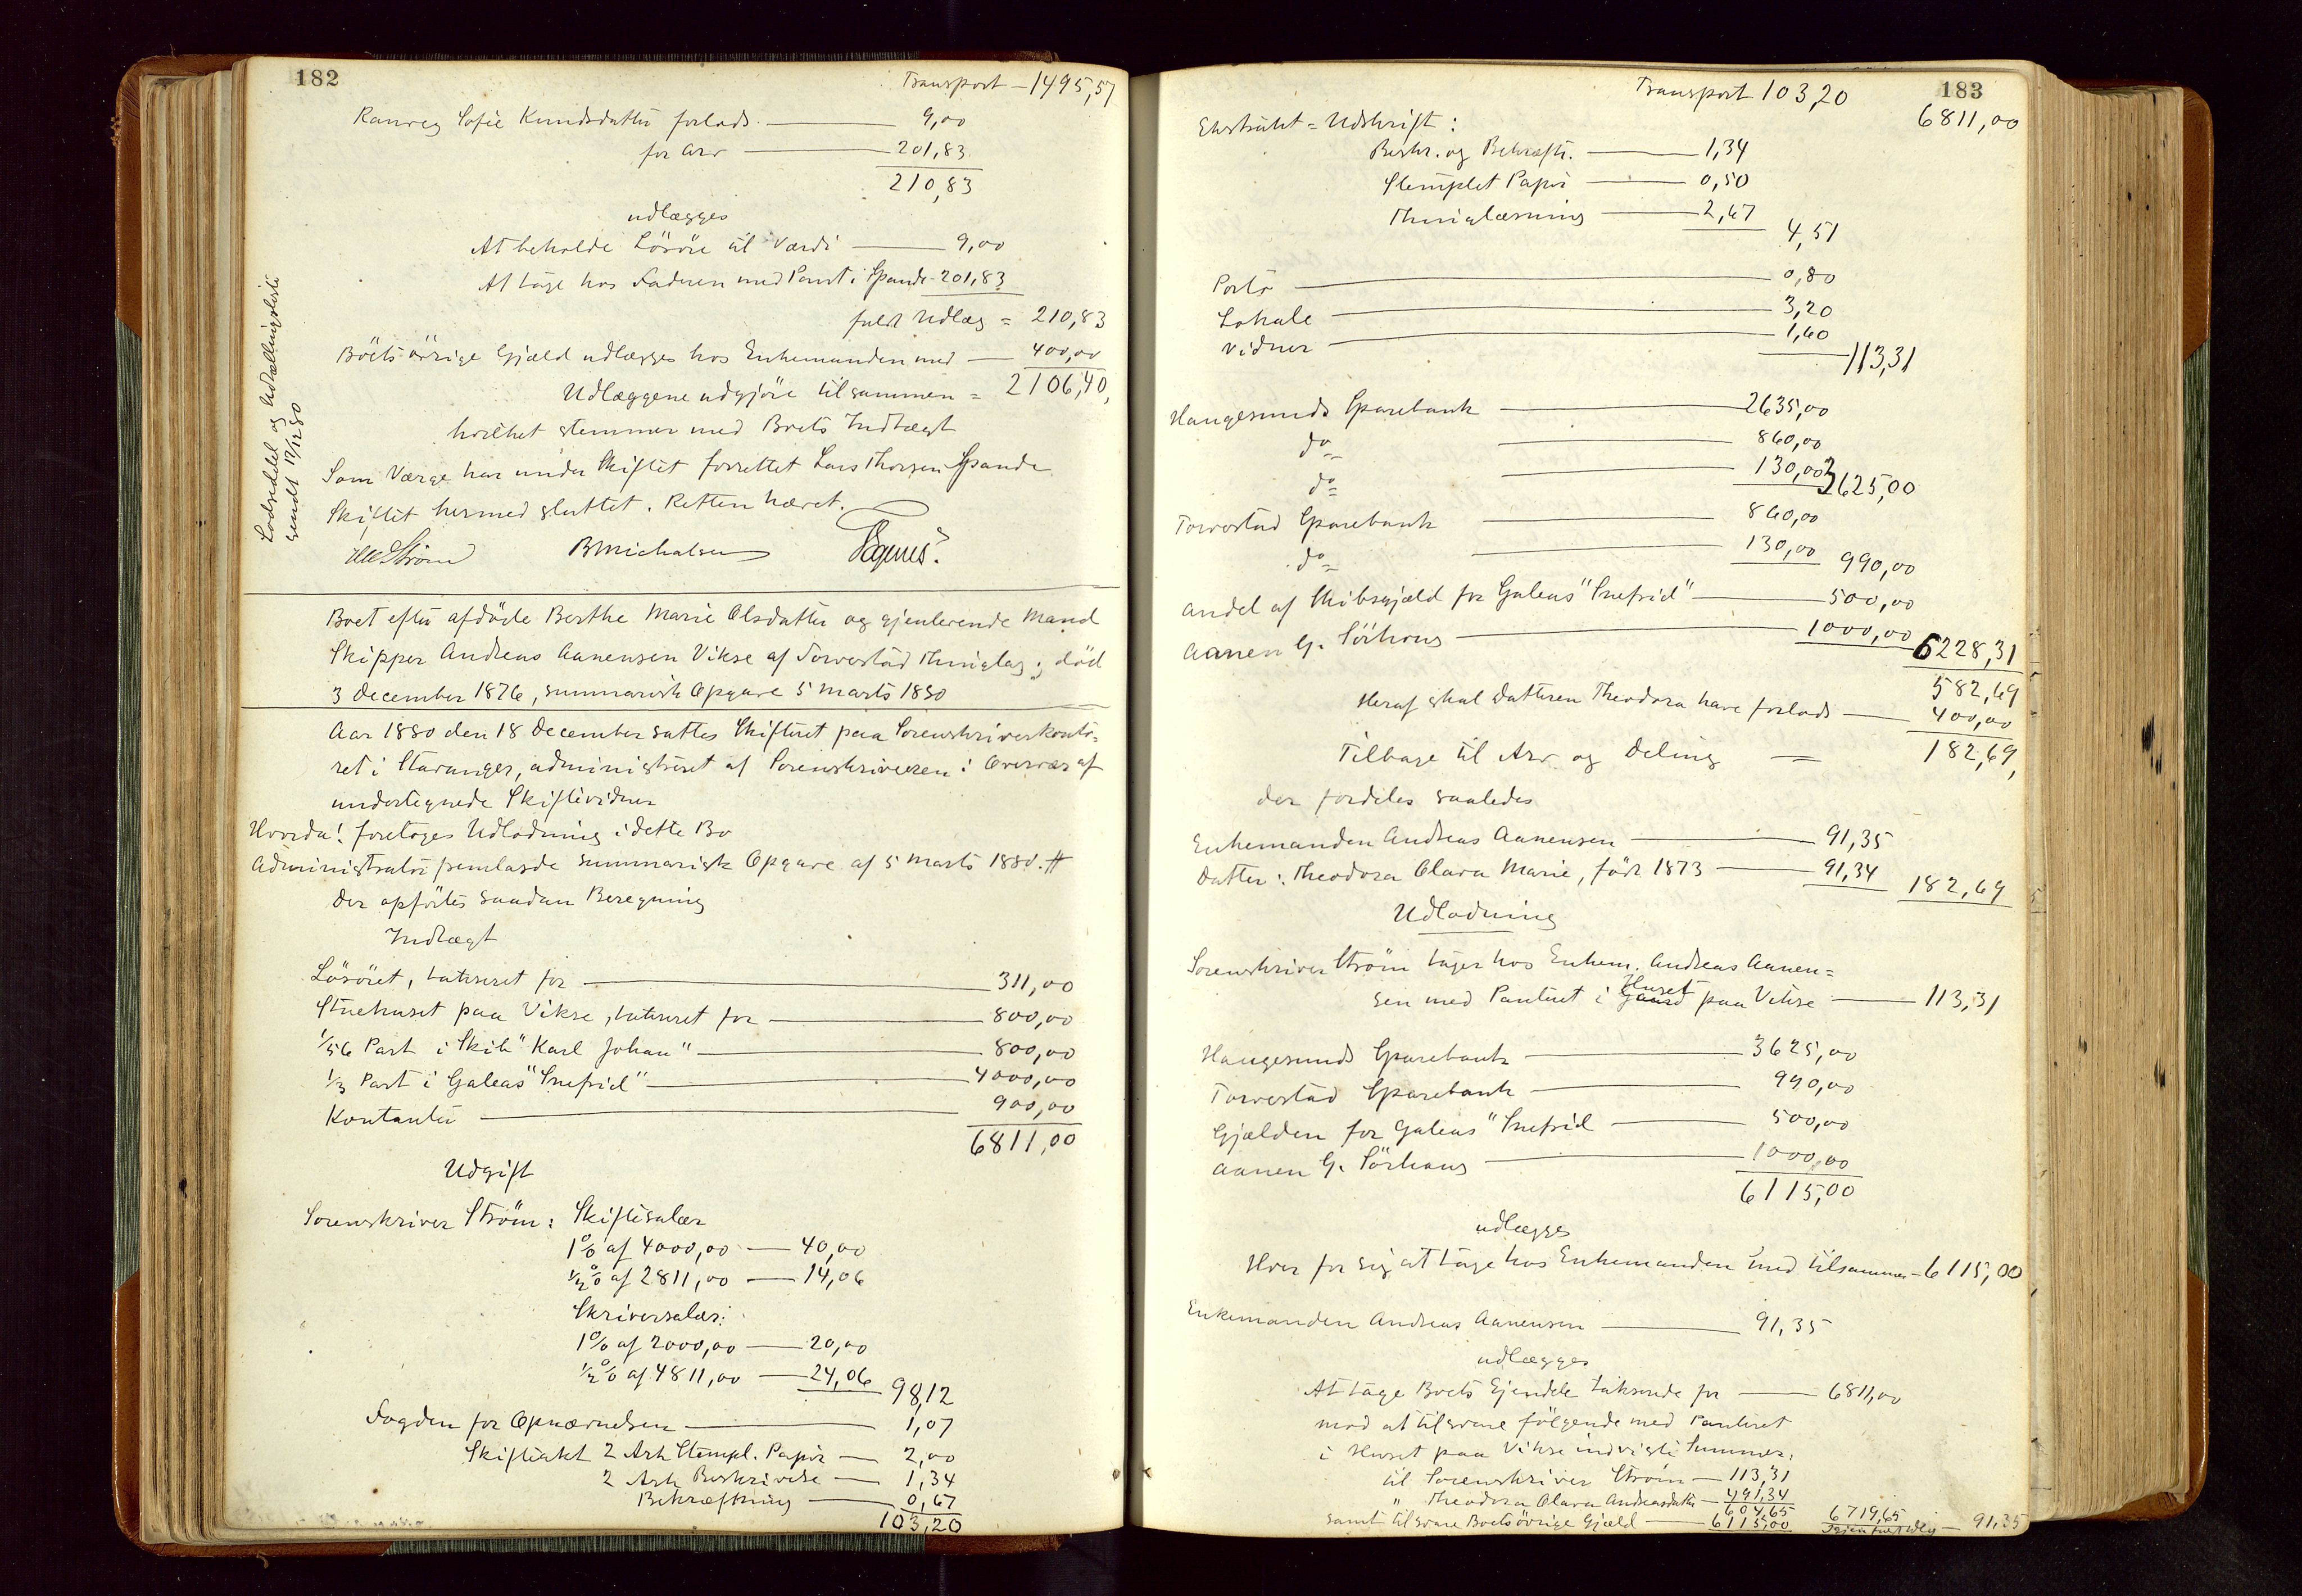 182
Transport — 1495,57
Ranveg Sofie Knudsdatter forlods — 9,00
for Arv — 201,83
210,83
udlægges
At beholde Lösöre til Værdi — 9,00
At tage hos Faderen med Pant i Spande 201,83
fuldt Udlæg = 210,83
Boets övrige Gjæld udlægges hos Enkemanden med — 400,00
Udlæggene udgjöre tilsammen = 2106,40,
hvilket stemmer med Boets Indtægt
Som Værge har under Skiftet forrettet Lars Thorsen Spande
Skiftet hermed sluttet. Retten hævet.
Ström BMichalsen
Lodseddel og Udtællingsliste
sendt 17/12 80
Boet efter afdöde Berthe Marie Olsdatter og gjenlevende Mand
Skipper Andreas Aanensen Vikse af Torvestad Thinglag; död
3 December 1876, summarisk Opgave 5 Marts 1880
Aar 1880 den 18 December sattes Skifteret paa Sorenskriverkonto=
ret i Stavanger, administreret af Sorenskriveren i Overvær af
undertegnede Skiftevidner
Hvorda! foretoges Udlodning i dette Bo
Administrator fremlagde summarisk Opgave af 5 Marts 1880. #
Der opförtes saadan Beregning
Indtægt
Lösöret, takseret for — 311,00
Stuehuset paa Vikse, takseret for — 800,00
1/56 Part i Skib "Karl Johan" — 800,00
1/3 Part i Galeas "Snefrid" — 4000,00
Kontanter — 900,00
6811,00
Udgift
Sorenskriver Ström: Skiftesalær
1% af 4000,00 — 40,00
1/2% af 2811,00 — 14,06
Skriversalær:
1% af 2000,00 — 20,00
1/2% af 4811,00 — 24,06 98,12
Fogden for Opnævnelsen — 1,07
Skifteakt 2 Ark Stempl. Papir — 2,00
2 Ark Beskrivelse — 1,34
Bekræftning — 0,67
103,20
183
Transport 103,20
6811,00
Ekstrakt = Udskrift:
Beskr. og Bekræft. — 1,34
Stemplet Papir — 0,50
Thinglæsning — 2,67
4,51
Porto — 0,80
Lokale — 3,20
Vidner — 1,60
113,31
Haugesunds Sparebank — 2635,00
do — 860,00
do — 130,00 3625,00
Torvestad Sparebank — 860,00
do — 130,00 990,00
Andel af Skibsgjæld for Galeas "Snefrid" — 500,00
Aanen G. Sörhaug — 1000,00 6228,31
582,69
Heraf skal Datteren Theodora have forlods — 400,00
Tilbage til Arv og Deling — 182,69,
der fordeles saaledes
Enkemanden Andreas Aanensen — 91,35
Datter: Theodora Olava Marie, född 1873 — 91,34 182,69
Udlodning
Sorenskriver Ström tager hos Enkem. Andreas Aanen=
sen med Panteret i Huset paa Vikse — 113,31
Haugesunds Sparebank — 3625,00
Torvestad Sparebank — 990,00
Gjælden for Galeas "Snefrid — 500,00
Aanen G. Sörhaug — 1000,00
6115,00
udlægges
Hver for sig at tage hos Enkemanden med tilsammen — 6115,00
Enkemanden Andreas Aanensen — 91,35
udlægges
At tage Boets Ejendele takserede for — 6811,00
mod at tilsvare fölgende med Panteret
i Huset paa Vikse indvigte Summer:
til Sorenskriver Ström — 113,31
" Theodora Olava Andreasdatter — 491,34
604,65
samt tilsvare Boets övrige Gjæld — 6115,00 6719,65
Igjen fuldt Udlæg — 91,35